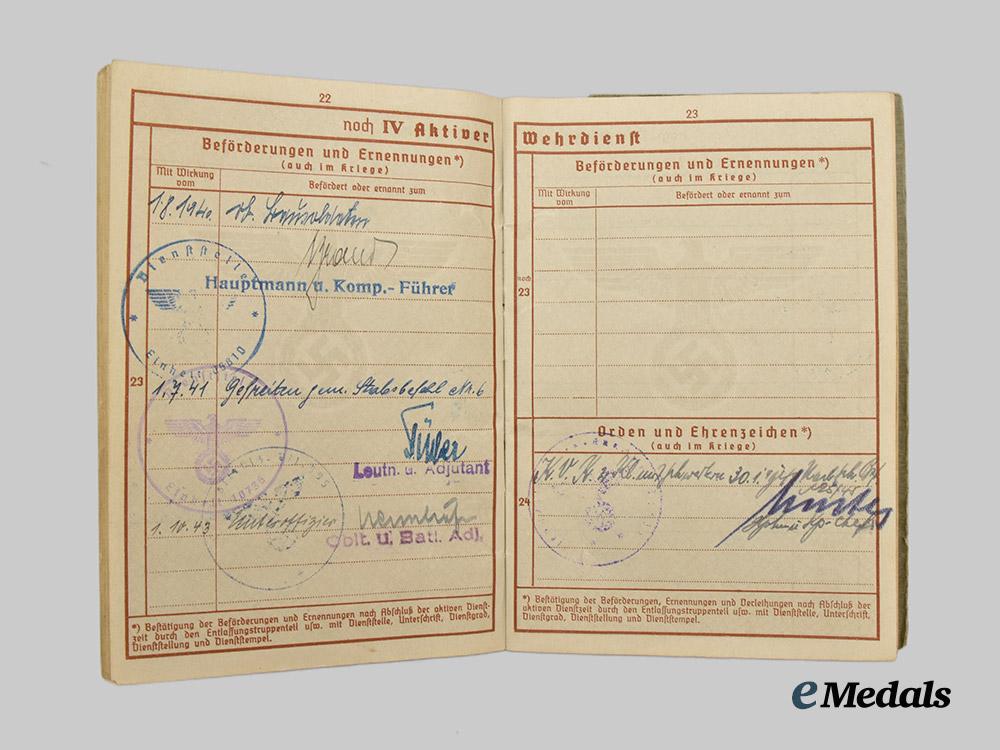 22
noch IV Aktiver
Beförderungen und Ernennungen*)
(auch im Kriege)
Mit Wirkung vom
Befördert oder ernannt zum
1.8.1940
Dienststelle
Hauptmann u. Komp.- Führer
Einheit 35810
23
1.7.41 Gefreiten gem. Stabsbefehl Nr. 6
Leutn. u. Adjutant
1. IV. 43 Unteroffizier
Oblt. u. Batl. Adj.
*) Bestätigung der Beförderungen und Ernennungen nach Abschluß der aktiven Dienst-
zeit durch den Entlassungstruppenteil usw. mit Dienststelle, Unterschrift, Dienstgrad,
Dienststellung und Dienststempel.
23
Wehrdienst
Beförderungen und Ernennungen*)
(auch im Kriege)
Mit Wirkung vom
Befördert oder ernannt zum
noch
23
Orden und Ehrenzeichen*)
(auch im Kriege)
K. V. K. 2. Kl. mit Schwertern 30.1.
24
*) Bestätigung der Beförderungen, Ernennungen und Verleihungen nach Abschluß der
aktiven Dienstzeit durch den Entlassungstruppenteil usw. mit Dienststelle, Unterschrift,
Dienstgrad, Dienststellung und Dienststempel.
eMedals